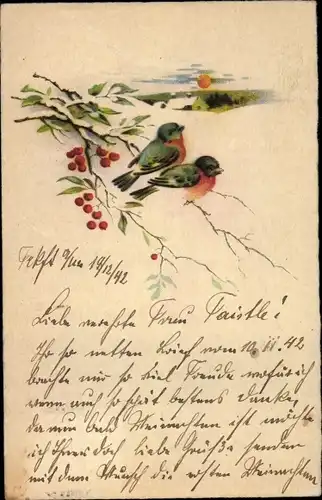 19/12/42
Liebe verehrte Frau Faistle!
Ihr so netten Brief vom 10.11.42
brachte mir so viel Freude wofür ich
wenn auch so spät bestens danke,
da nun bald Weihnachten ist möchte
ich Ihnen doch liebe Grüße senden
mit dem Wunsch die ersten Weihnachten